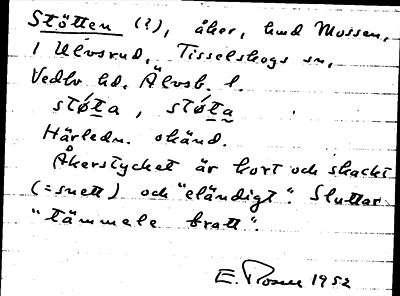 Stötten (?), åker, hmd Mossen,
1 Ulvsrud, Tisselskogs sn,
Vedbo hd. Älvsb. l.
stǿta, stǿta
Härledn. okänd.
Åkerstycket är kort och skackt
(=snett) och "eländigt". Sluttar
"tämmele bratt".
E. Rosen 1952